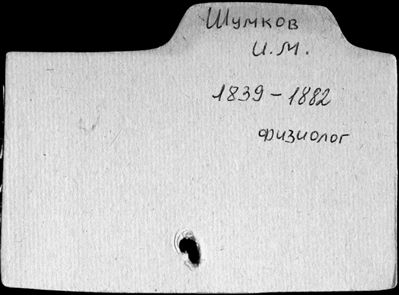 Шумков
И.М.
1839-1882
физиолог